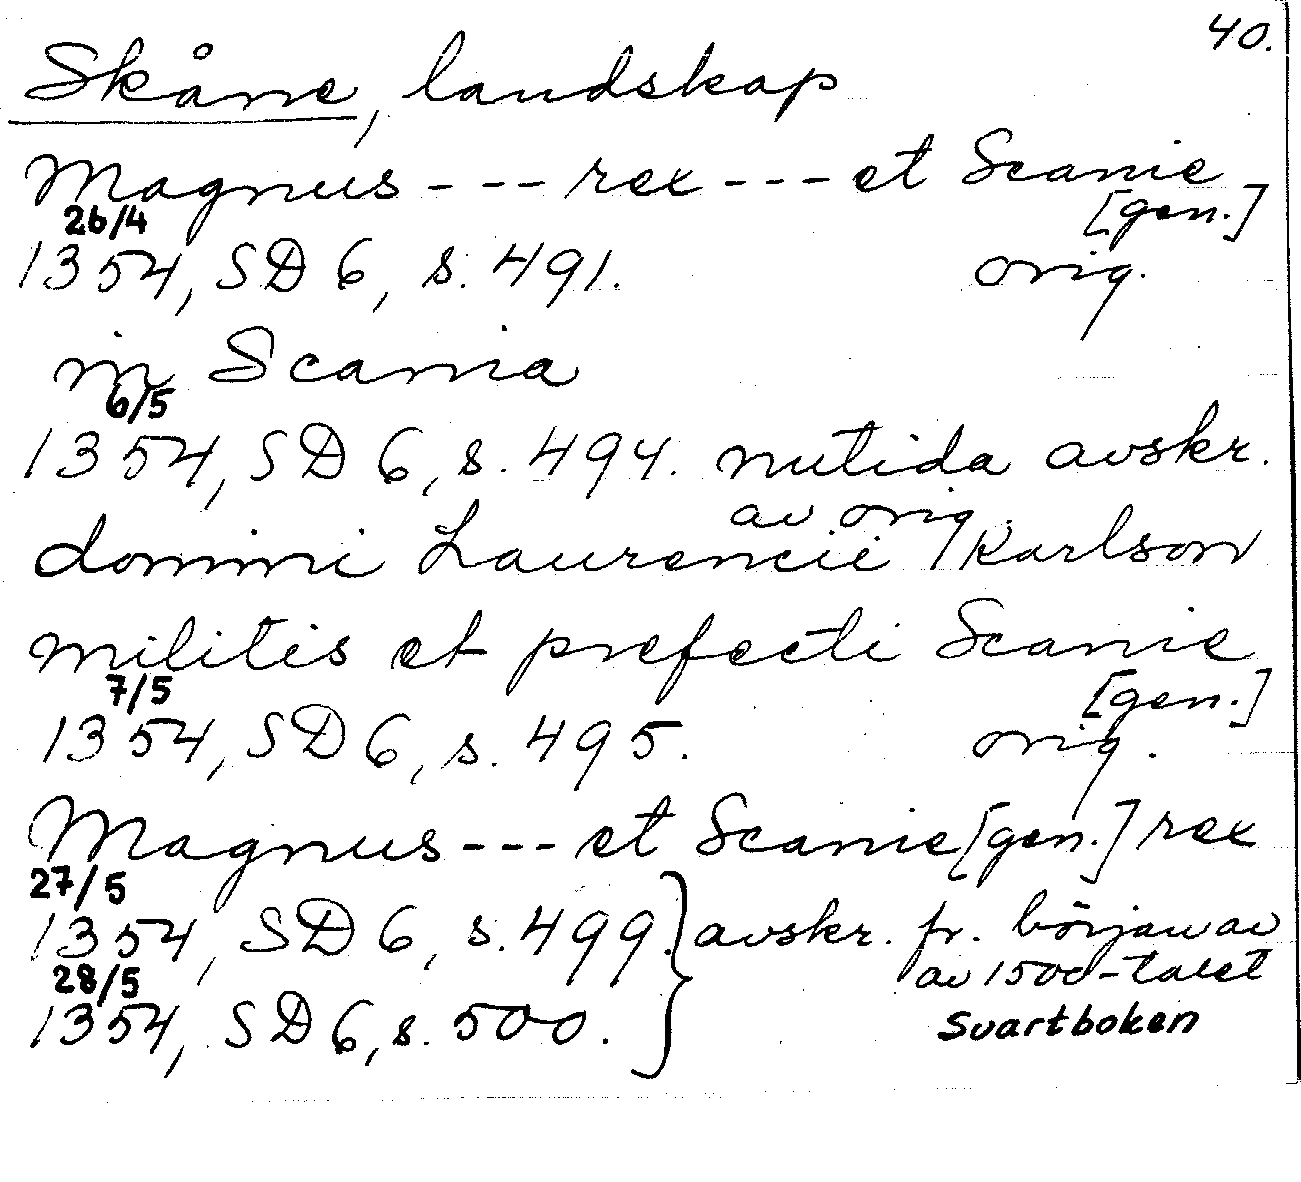 40.
Skåne, landskap
Magnus - - - rex - - - et Scanie
[gen.]
26/4
1354, SD 6, s. 491. orig.
in Scania
6/5
1354, SD 6, s. 494. nutida avskr.
av orig.
domini Laurencii Karlson
militis et prefecti Scanie
[gen.]
7/5
1354, SD 6, s. 495. orig.
Magnus - - - et Scanie [gen.] rex
27/5
1354, SD 6, s. 499. } avskr. fr. början av
av 1500-talet
28/5
1354, SD 6, s. 500. Svartboken